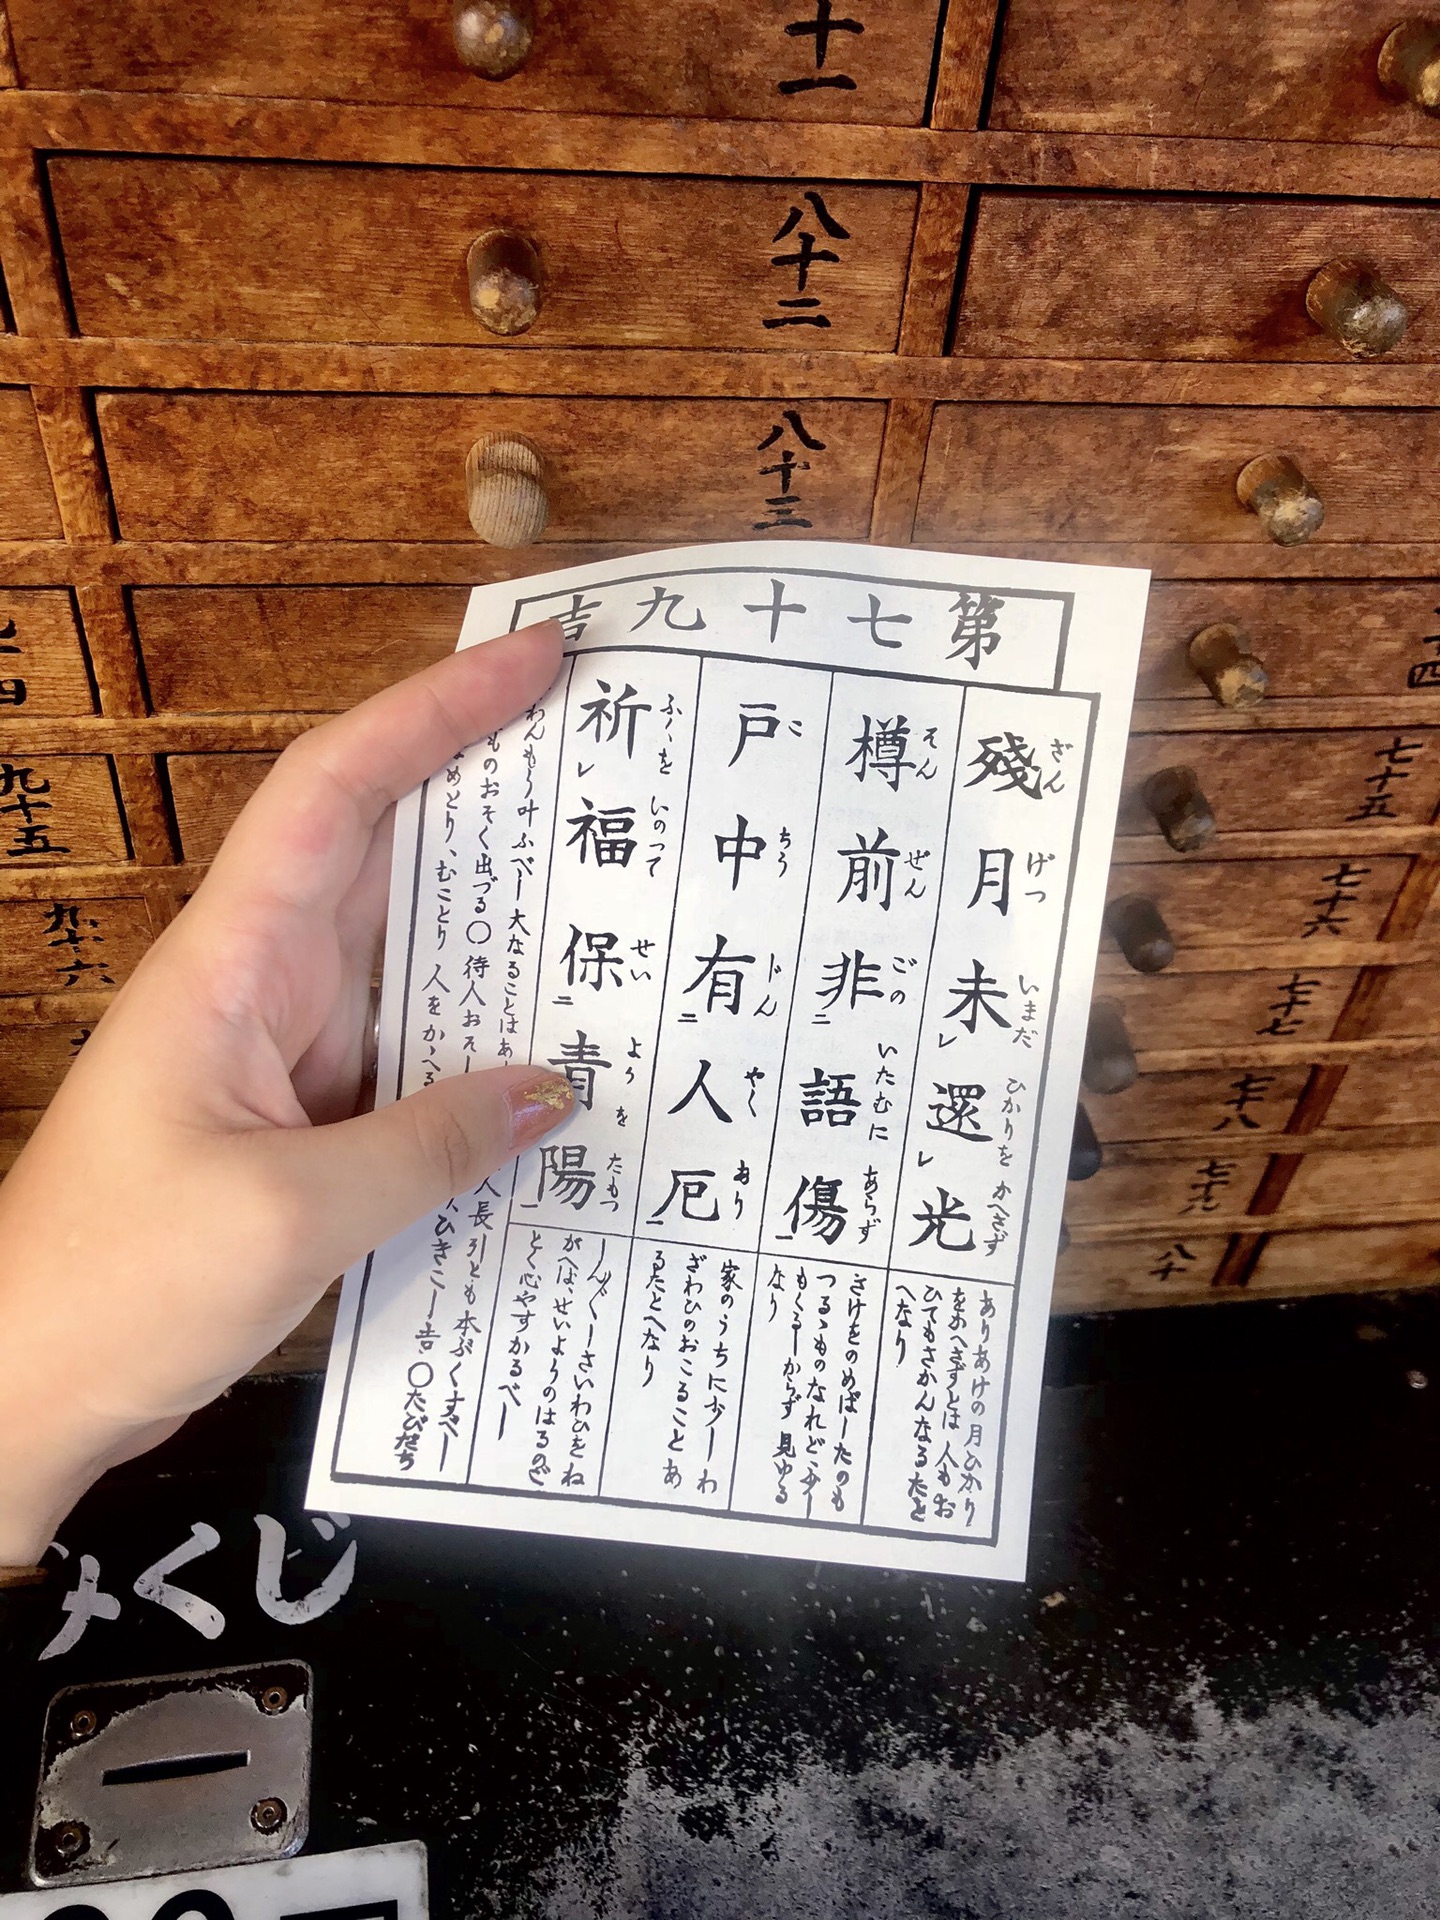 十一
八十二
八十三
七十五
七十六
七十七
七十八
七十九
八十
九十五
九十六
第七十九吉
殘月未還光
ざん げつ いまだ ひかりを かへさず
ありあけの月ひかり
をかへさずとは人もお
ひてもさかんなるたと
へなり
樽前非語傷
そん ぜん ごの いたむに あらず
さけをのめばーたのも
つるゝものなれど少ー
もくるーからず見ゆる
なり
戸中有人厄
こ ちう じん やく あり
家のうちに少ーわ
ざわひのおこることあ
るたとへなり
祈福保青陽
ふくを いのつて せい よう を たもつ
ーんべーさいわひをね
がへば、せいようのはるのご
とく心やすかるべー
わんもう叶ふべー大なることはあー
ものおそく出づる〇待人おそー
人長引とも本ぶくすべー
めとり、むことり人をかゝへる
ひきこー吉〇たびだち
みくじ